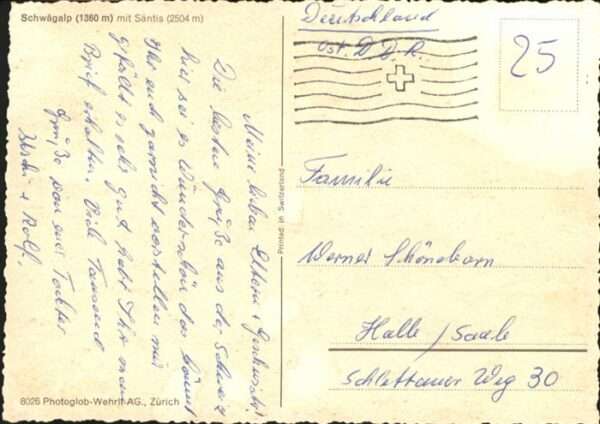 Schwägalp (1360 m) mit Säntis (2504 m)
Meine lieben Eltern + Geschwister!
Die besten Grüße aus der Schweiz
hier ist es wunderschön das könnt
Ihr euch gar nicht vorstellen mir
gefällt es sehr gut habt Ihr mein
Brief erhalten. Viele Tausend
Grüße von eurer Tochter
+ Rolf.
8026 Photoglob-Wehrli AG., Zürich
Printed in Switzerland
Deutschland
Ost. D.D.R.
25
Familie
Werner Schöneborn
Halle / Saale
Schlettauer Weg 30